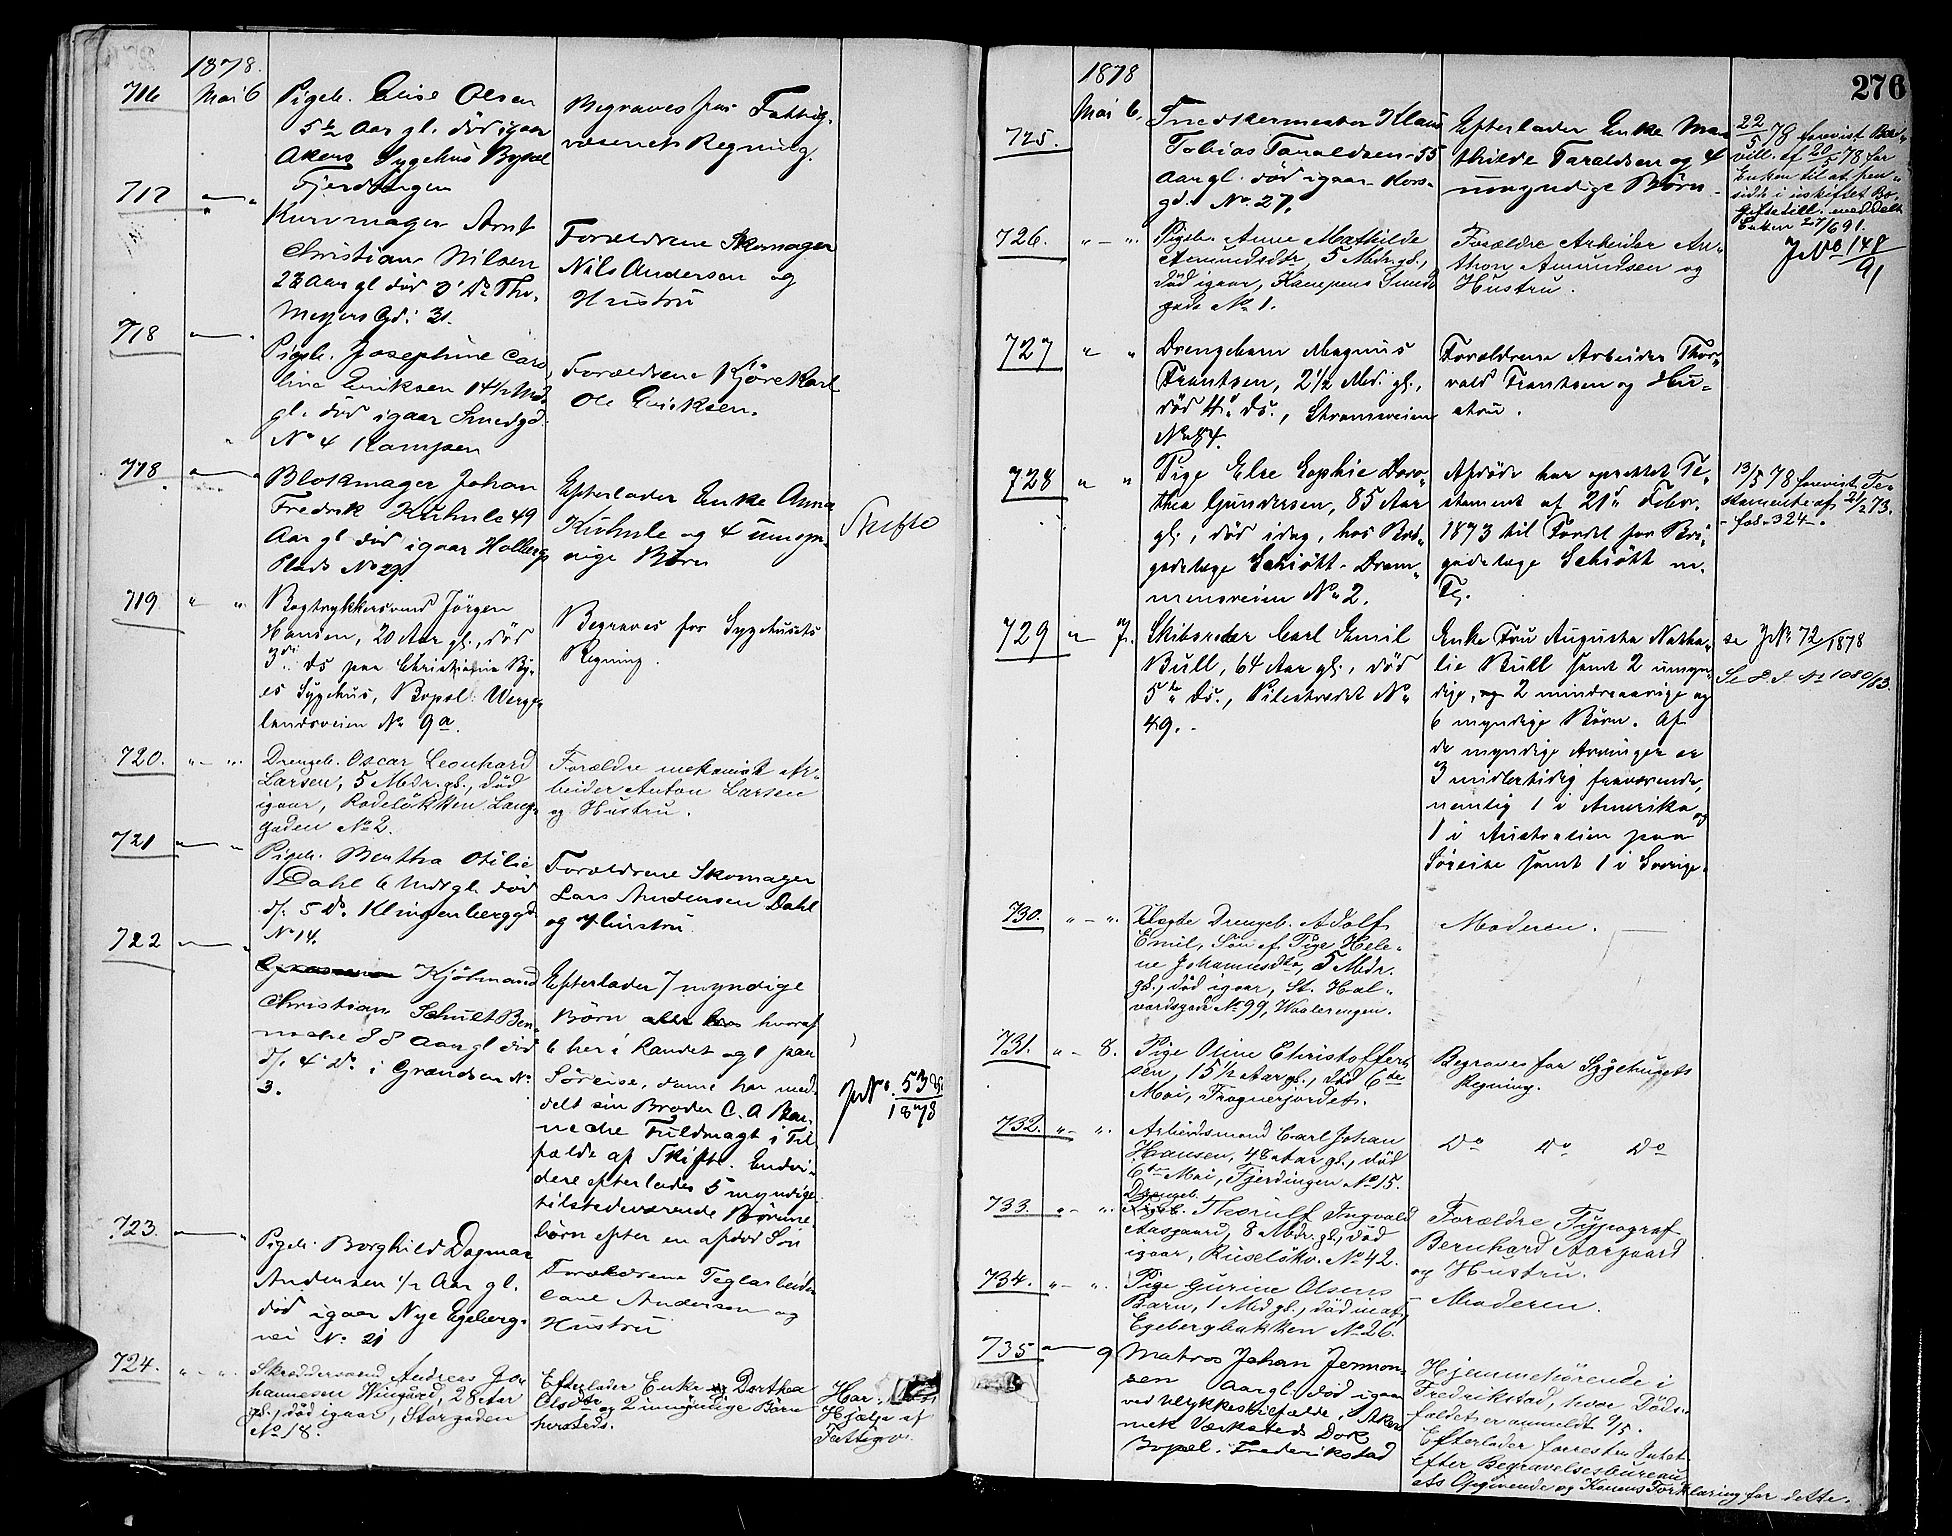 1878.
716
Mai 6
Pigeb. Elise Olsen
5½ Aar gl. død igaar
Akers Sygehus Bopæl
Fjerdingen
Begraves for Fattig-
væsenets Regning.
717
Kurvmager Arnt
Christian Nilsen
23 Aar gl død 3' Ds Th.
Meyers Gd: 31.
Forældrene Skomager
Nils Andersen og
Hustru
718
Pigeb. Josephine Caro
line Eriksen 14½ Md
gl. død igaar Smedgd.
No 4 Kampen
Forældrene Kjørekarl
Ole Eriksen.
718
Blokmager Johan
Fredrik Kuhnle 49
Aar gl død igaar Holbergs
Plads No 29
Efterlader Enke Anna
Kuhnle og 4 umyn-
dige Børn
Skifte
719
Bogtrykkersvend Jörgen
Hansen, 20 Aar gl., død
3die ds paa Christiania By-
es Sygehus, Bopæl: Werge-
landsveien No 9a.
Begraves for Sygehusets
Regning.
720.
Drengeb. Oscar Leonhard
Larsen, 5 Mdr. gl., død
igaar, Rodeløkken Lang-
gaden No 2.
Forældre mekanisk Ar-
beider Anton Larsen
og Hustru.
721
Pigeb. Bertha Otilie
Dahl 6 Mdr gl. død
d/. 5 Ds. Klingenberggd
No 14.
Forældrene Skomager
Lars Andersen Dahl
og Hustru
722
Kjølmand
Christian Schult Ben-
neche 88 Aar gl død
d/. 4' Ds. i Grændsen No
3.
Efterlader 7 myndige
Børn hvoraf
6 her i Landet og 1 paa
Söreise, denne har med-
delt sin Broder C. A. Ben-
neche Fuldmagt i Til-
fælde af Skifte. Endvi-
dere efterlades 5 myndige
tilstedeværende Börne-
børn efter en afdød Søn
JNo. 53/1878
723.
Pigeb. Borghild Dagmar
Andersen ½ Aar gl.
død igaar Nye Egeberg-
vei No 21
Forældrene Teglarbeider
Carl Andersen og
Hustru
724.
Skræddersvend Andreas Jo-
hannesen Wingård, 28 Aar
gl., død igaar, Storgaden
No 18.
Efterlader Enke Dorthea
Olsdtr og 2 umyndige Børn
hersteds.
Har
Hjælp af
Fattigv.
276
1878
725.
Mai 6.
Snedkermester Klaus
Tobias Taraldsen 55
Aar gl. død igaar Kors-
gd. No. 27.
Efterlader Enke Mat
thilde Taraldsen og 4
umyndige Børn
22/5 78 forevist Bevil-
vill. af 20/5 78 for
Enken til at hen-
sidde i uskiftet Bo.
Giftetill. meddelt
Enken 27/6 91.
JNo 148/91
726.
Pigeb. Anne Mathilde
Amundsdtr, 5 Mdr. gl.,
død igaar, Kampens Smed
gade No 1.
Forældre Arbeider An-
thon Amundsen og
Hustru.
727
Drengebarn Magnus
Frantsen, 2½ Md. gl.,
død 4de ds., Strømsveien
No 84.
Forældrene Arbeider Thor-
vald Frantsen og Hu-
stru.
728
Pige Else Sophie Doro-
thea Gundersen, 85 Aar
gl., død idag, hos Bri-
gadelæge Schiøtt - Dram-
mensveien No 2.
Afdøde har oprettet Te-
stament af 21de Febr.
1873 til Fordel for Bri-
gadelæge Schiøtt m.
Fl.
13/5 78 forevist Te-
stamente af 21/2 73.
- fol - 324 -.
729
7.
Skibsreder Carl Emil
Bull, 64 Aar gl., død
5te ds., Pilestrædet No
49.
Enke Fru Augusta Natha-
lie Bull samt 2 umyn-
dige, 2 mindreaarige og
6 myndige Børn. Af
de myndige Arvinger er
3 midlertidig fraværende,
nemlig 1 i Amerika og
1 i Australien paa
Søreise samt 1 i Sverige.
se JNo 72/1878
Se S. A No 1080/83.
730.
Uægte Drengeb. Adolf
Emil, Søn af Pige Hele-
ne Johannesdtr, 5 Mdr.
gl., død igaar, St. Hal-
vardsgade No 99, Waalerengen.
Moderen.
731.
8.
Pige Oline Christoffer-
sen, 15½ Aar gl., død 6te
Mai, Frognerjordet.
Begraves for Sygehusets
Regning.
732.
Arbeidsmand Carl Johan
Hansen, 48 Aar gl., død
6te Mai, Fjerdingen No 15.
Do Do Do
733.
Drengeb.
Thorulf Ingvald
Aasgaard, 8 Mdr. gl., død
igaar, Ruseløkv. No 42.
Forældre Typograf
Bernhard Aasgaard
og Hustru.
734.
Pige Gurine Olsens
Barn, 1 Md gl., død inat,
Egebergbakken No 26.
Moderen.
735
9
Matros Johan Jermon-
sen Aar gl. død igaar
ved Ulykkestilfælde i Akers
mek Værksteds Dok
Bopæl. Frederikstad
Hjemmehørende i
Fredrikstad, hvor Döds-
faldet er anmeldt 9/5.
Efterlader forresten Intet
Efter Begravelsesbureau-
ets Opgivende og Konens Forklaring for dette.